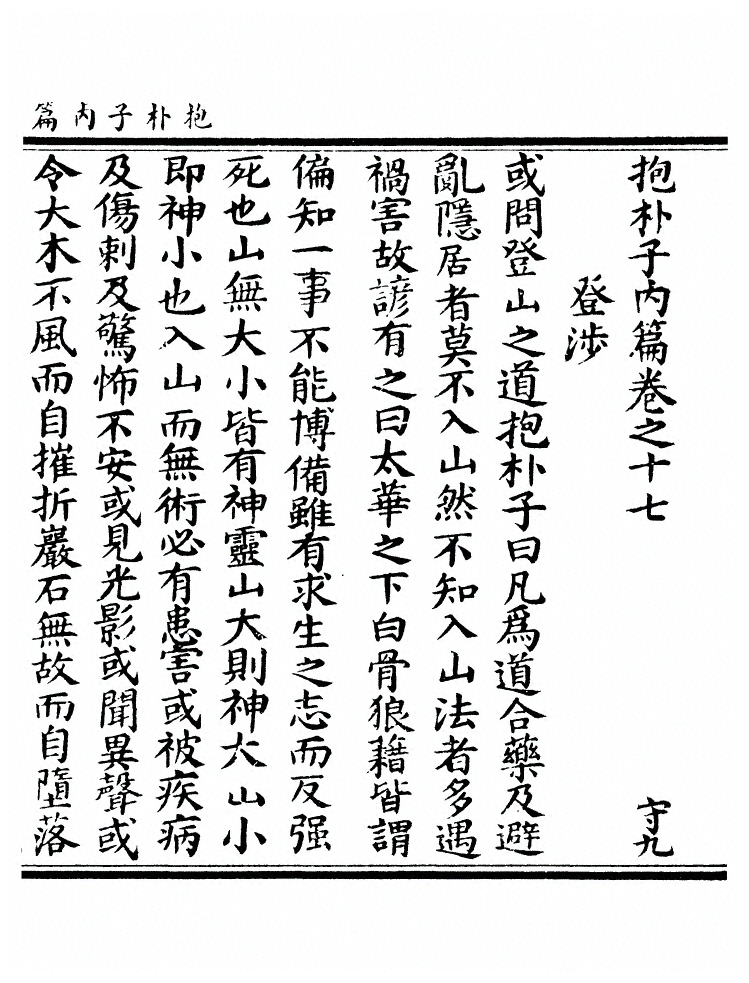 抱朴子内篇
抱朴子内篇卷之十七
守九
登涉
或問登山之道抱朴子曰凡爲道合藥及避
亂隱居者莫不入山然不知入山法者多遇
禍害故諺有之曰太華之下白骨狼藉皆謂
偏知一事不能博備雖有求生之志而反强
死也山無大小皆有神靈山大則神大山小
即神小也入山而無術必有患害或被疾病
及傷刺及驚怖不安或見光影或聞異聲或
令大木不風而自摧折巖石無故而自墮落